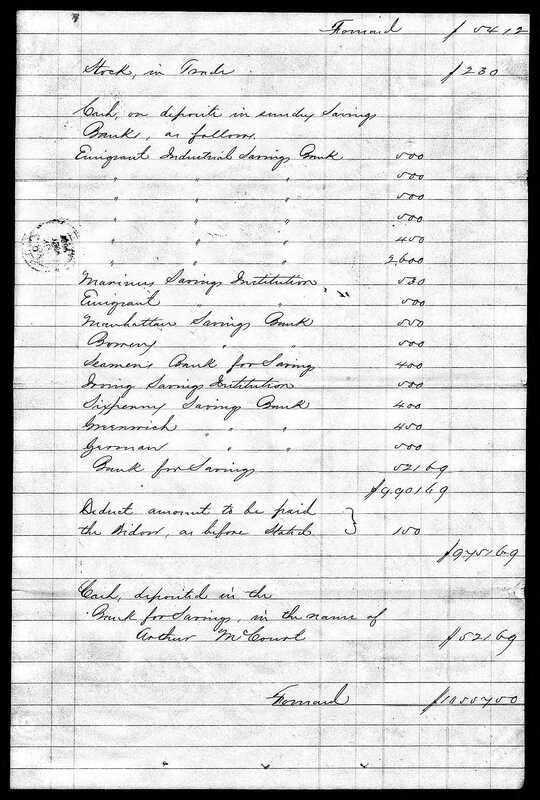 Forward $ 54 12
Stock, in Trade $ 230
Cash, on deposite in sundry Savings
Banks, as follows.
Emigrant Industrial Savings Bank 500
" " " 500
" " " 500
" " " 500
" " " 450
" " " 2,600
Mariners Savings Institution, 530
Emigrant " " 500
Manhattan Savings Bank 550
Bowery " " 500
Seamens Bank for Savings 400
Irving Savings Institution 500
Sixpenny Savings Bank 400
Greenwich " " 450
German " " 500
Bank for Savings 521 69
$9.901 69
Deduct amount to be paid
the Widow, as before Stated } 150
$9751 69
Cash, deposited in the
Bank for Savings, in the name of
Arthur McCourt $521 69
Forward $10557 50